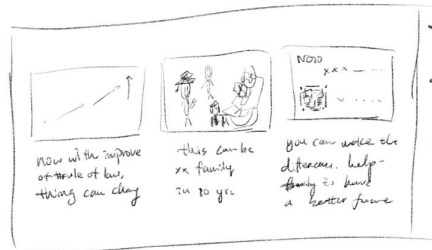 NOW
xxx
now with improve
of rule of law,
thing can chang
this can be
xx family
in 20 yrs
you can make the
difference. help
to have
a better future